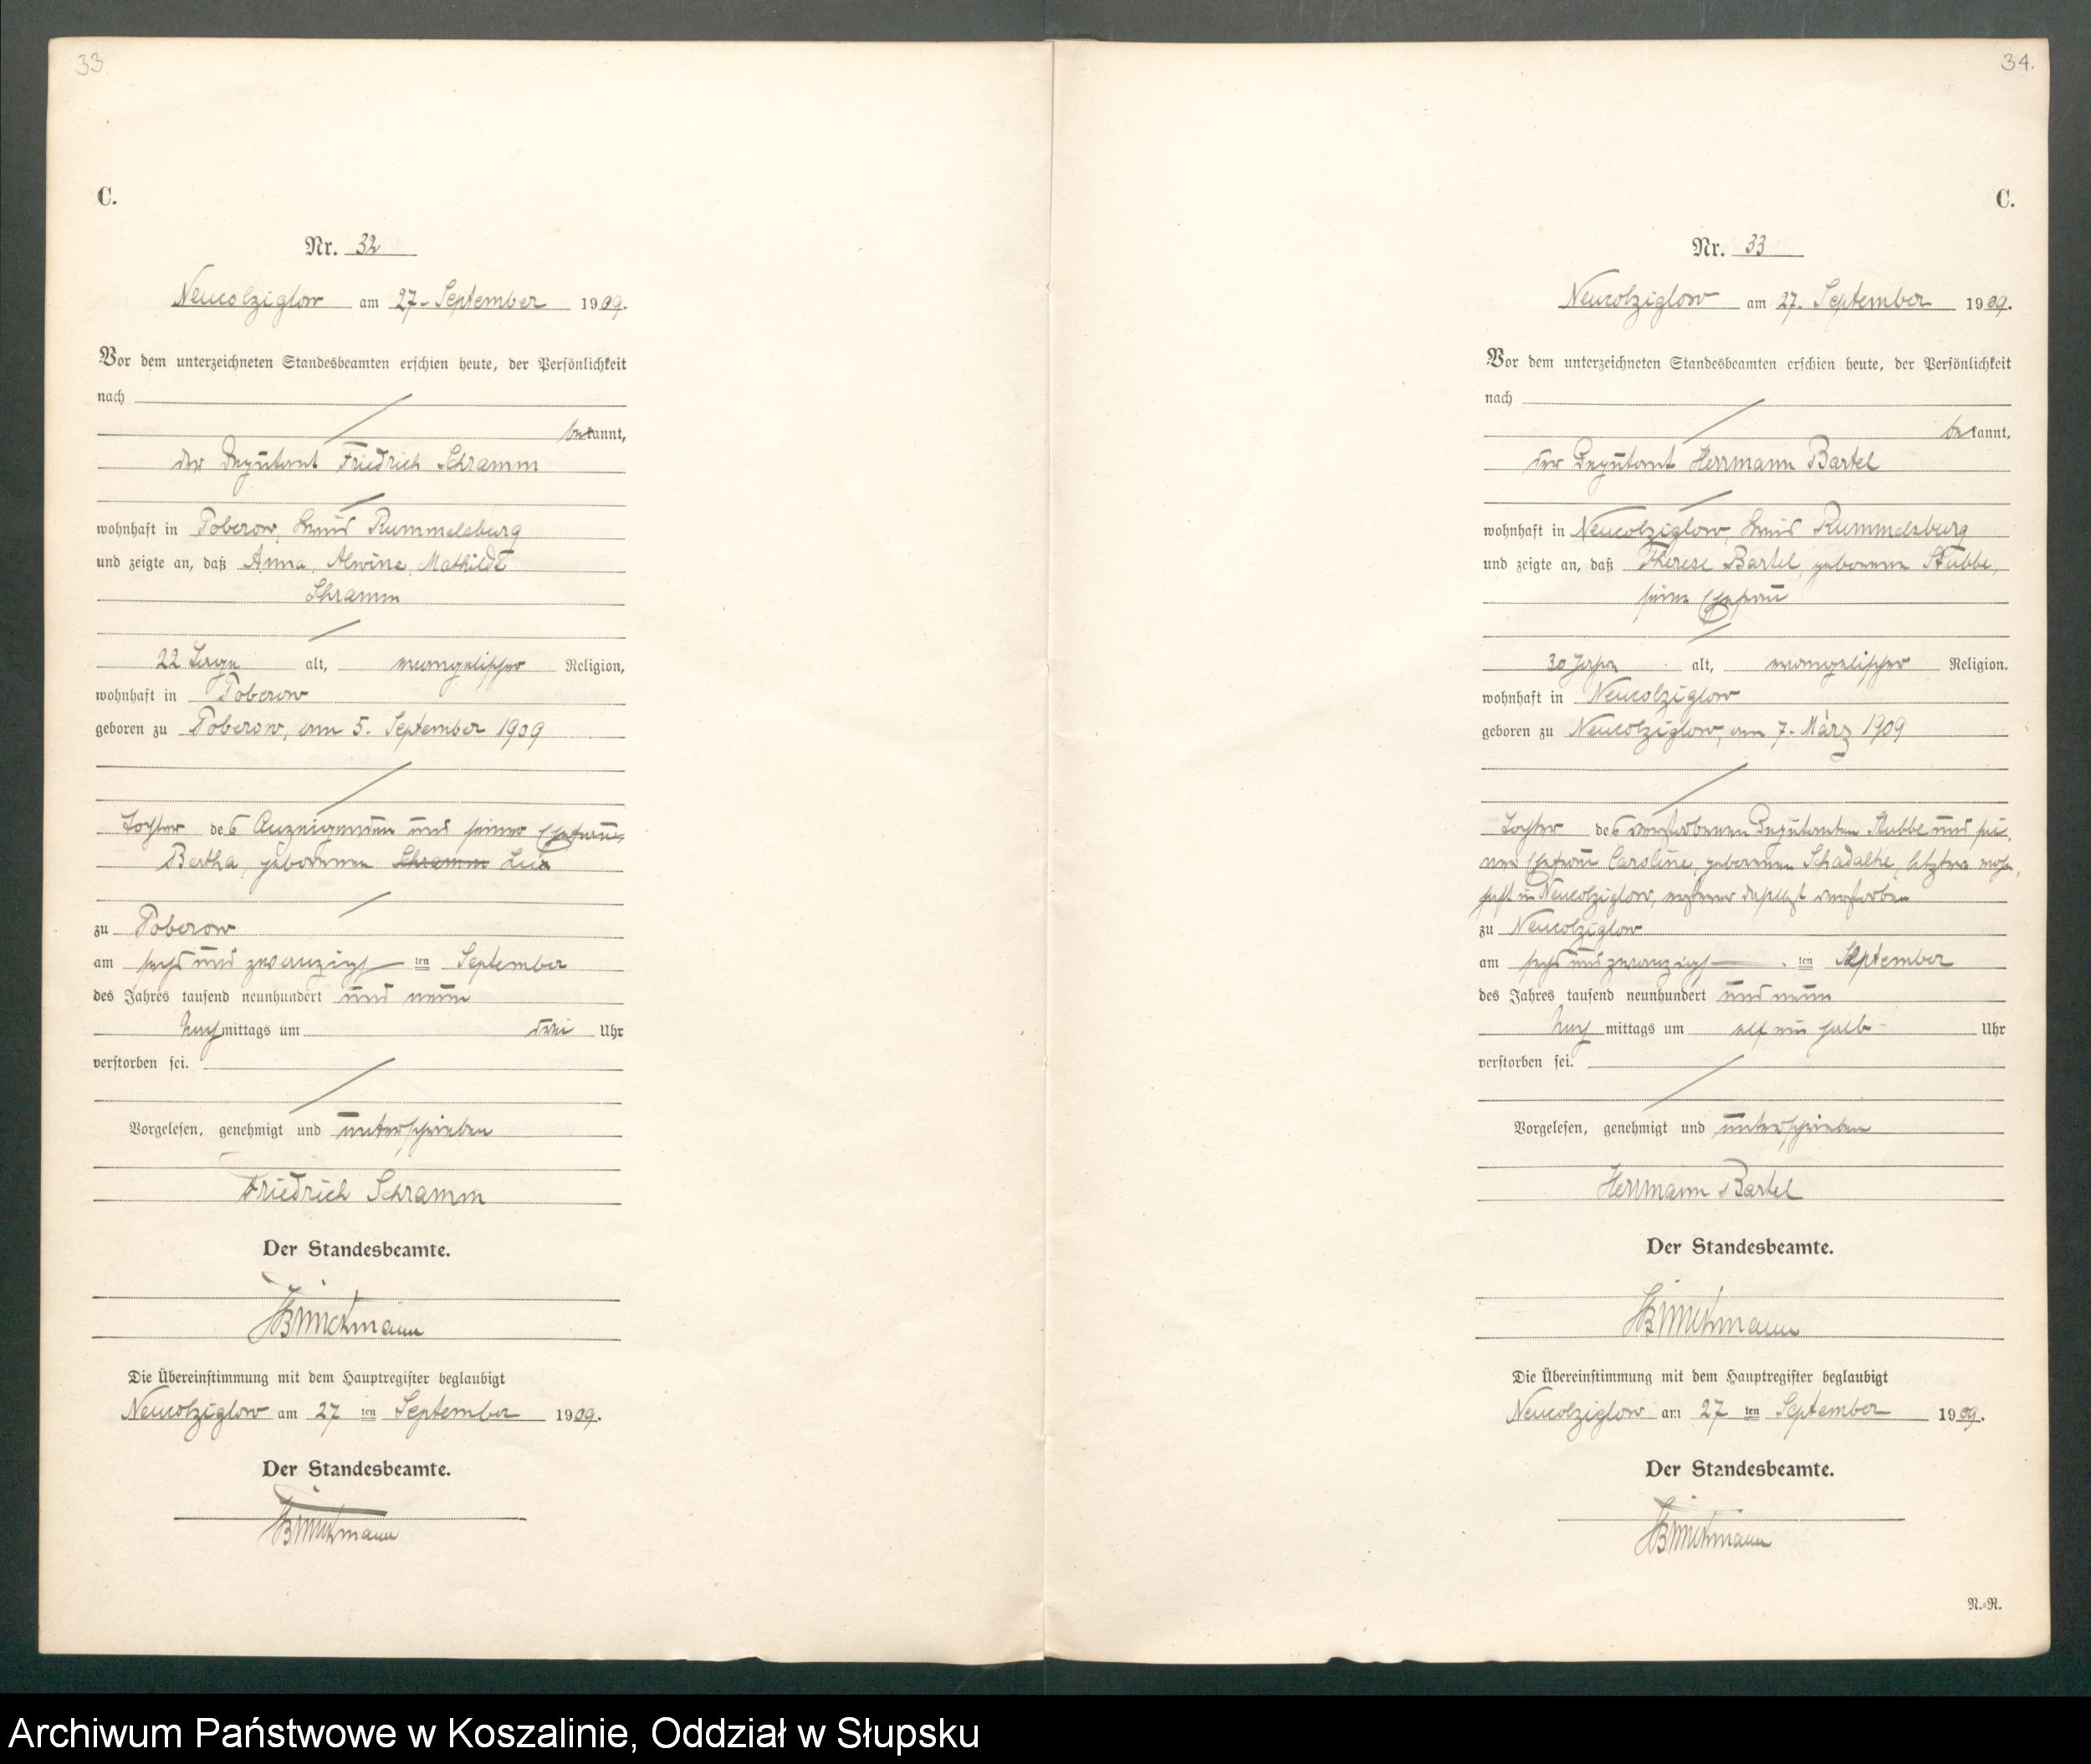 33
C.
Nr. 32
Neucolziglow am 27. September 1909.
Vor dem unterzeichneten Standesbeamten erschien heute, der Persönlichkeit
nach
bekannt,
der Deputant Friedrich Schramm
wohnhaft in Poberow, Kreis Rummelsburg
und zeigte an, daß Anna, Alwine, Mathilde
Schramm
22 Tage alt, evangelischer Religion,
wohnhaft in Poberow
geboren zu Poberow, am 5. September 1909
Tochter des Anzeigenden und seiner Ehefrau,
Bertha, geborenen Schramm Lux
zu Poberow
am sechs und zwanzigsten September
des Jahres tausend neunhundert und neun
Nachmittags um drei Uhr
verstorben sei.
Vorgelesen, genehmigt und unterschrieben
Friedrich Schramm
Der Standesbeamte.
Die Übereinstimmung mit dem Hauptregister beglaubigt
Neucolziglow am 27 ten September 1909.
Der Standesbeamte.
34.
C.
Nr. 33
Neucolziglow am 27. September 1909.
Vor dem unterzeichneten Standesbeamten erschien heute, der Persönlichkeit
nach
bekannt,
der Deputant Herrmann Bartel
wohnhaft in Neucolziglow, Kreis Rummelsburg
und zeigte an, daß Therese Bartel, geborene Stubbe,
seine Ehefrau
30 Jahre alt, evangelischer Religion,
wohnhaft in Neucolziglow
geboren zu Neucolziglow, am 7. März 1909
Tochter des verstorbenen Deputanten Stubbe und sei-
ner Ehefrau Caroline, geborenen letztere wohn-
haft in Neucolziglow, ersterer daselbst verstorben
zu Neucolziglow
am sechs und zwanzigsten September
des Jahres tausend neunhundert und neun
Nachmittags um elf ein halb Uhr
verstorben sei.
Vorgelesen, genehmigt und unterschrieben
Herrmann Bartel
Der Standesbeamte.
Die Übereinstimmung mit dem Hauptregister beglaubigt
Neucolziglow am 27 ten September 1909.
Der Standesbeamte.
N.-R.
Archiwum Państwowe w Koszalinie, Oddział w Słupsku